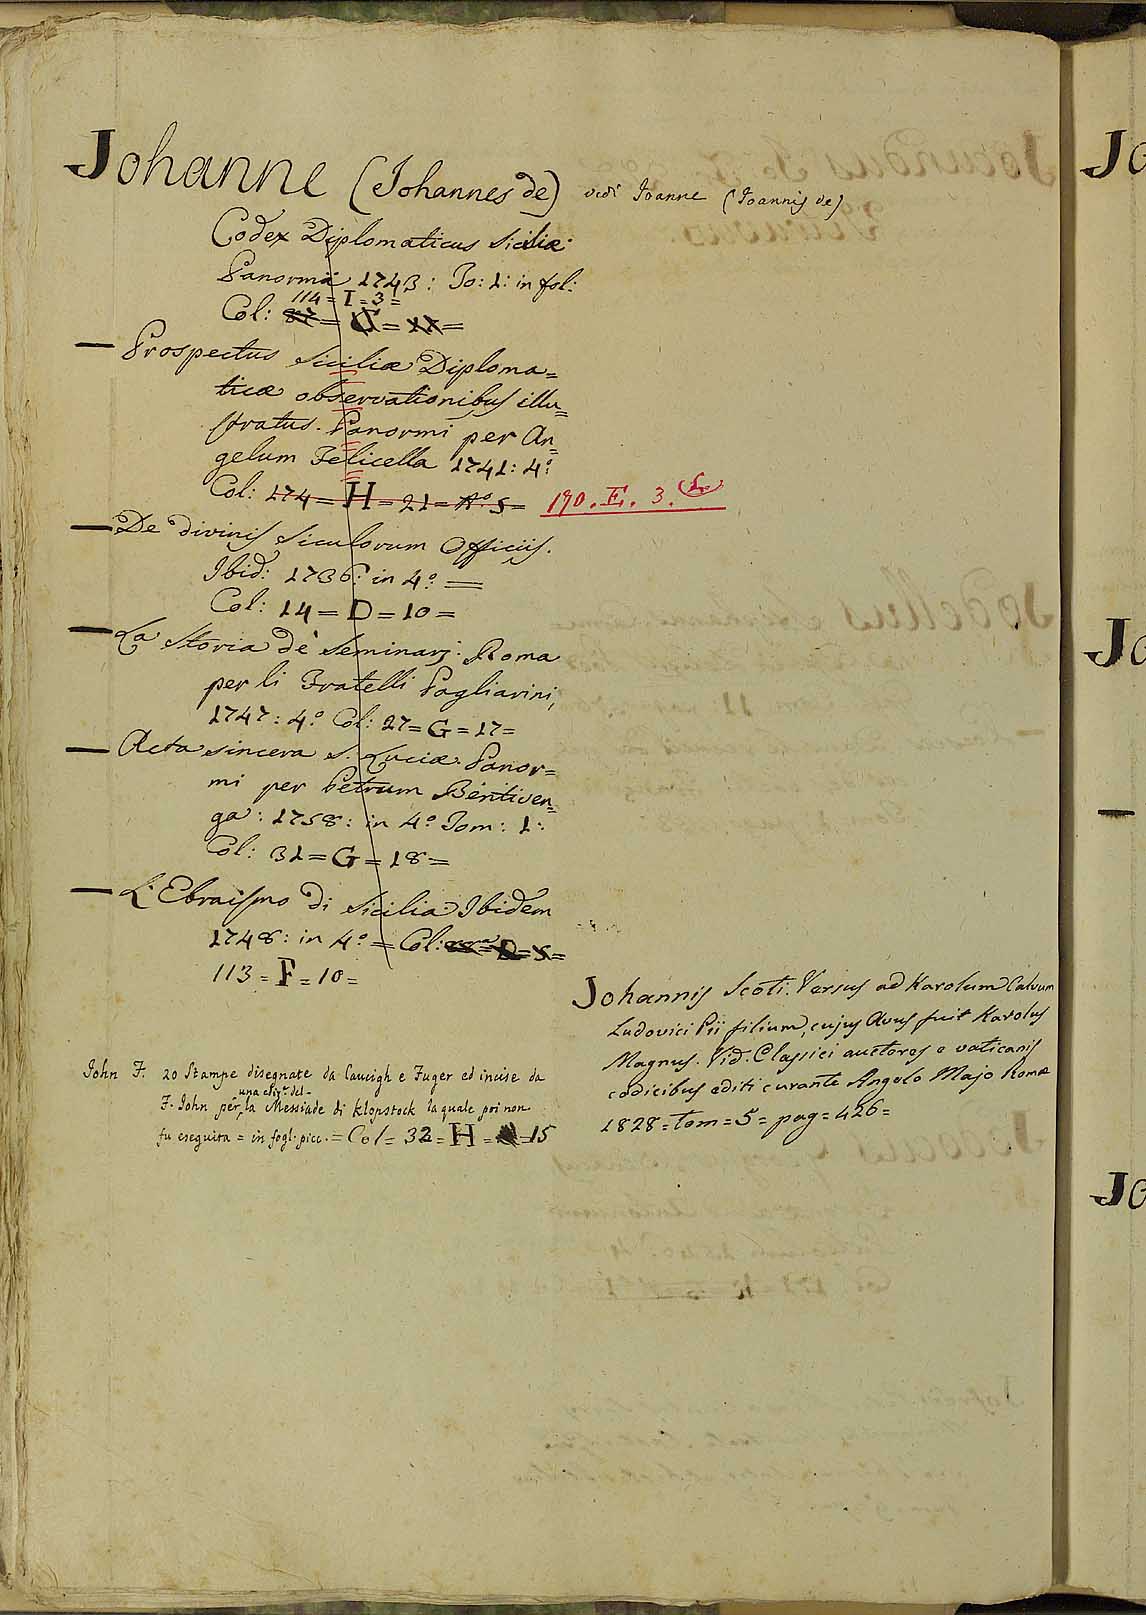 Johanne (Johannes de) vedi Ioanne (Ioannis de)
Codex Diplomaticus Siciliæ.
Panormi 1743: To: 1: in fol:
114 = I = 3 =
Col:
— Prospectus Siciliæ Diploma=
ticæ observationibus illu=
stratus. Panormi per An=
gelum Felicella 1741: 4º
Col: 174 = H = 21 = Nº 5 = 190. E. 3.
— De divinis Siculorum Officiis.
Ibid: 1736: in 4º =
Col: 14 = D = 10 =
— La Storia de' Seminarj: Roma
per li Fratelli Pagliarini,
1747: 4º Col: 27 = G = 17 =
— Acta sincera S. Luciæ. Panor=
mi per Petrum Bentiven=
ga: 1758: in 4º Tom: 1:
Col: 31 = G = 18 =
— L'Ebraismo di Sicilia Ibidem
1748: in 4º = Col:
113 = F = 10 =
Johannis Scoti. Versus ad Karolum Calvum
Ludovici Pii filium, cujus Avus fuit Karolus
Magnus. Vid. Classici auctores e vaticanis
codicibus editi curante Angelo Majo Romæ
1828 = tom = 5 = pag = 426 =
John F. 20 Stampe disegnate da Caucigh e Fuger ed incise da
una ediz.e del-
F. John per la Messiade di Klopstock la quale poi non
fu eseguita = in fogl. picc. = Col = 32 = H = 15
Jo
Jo
—
Jo